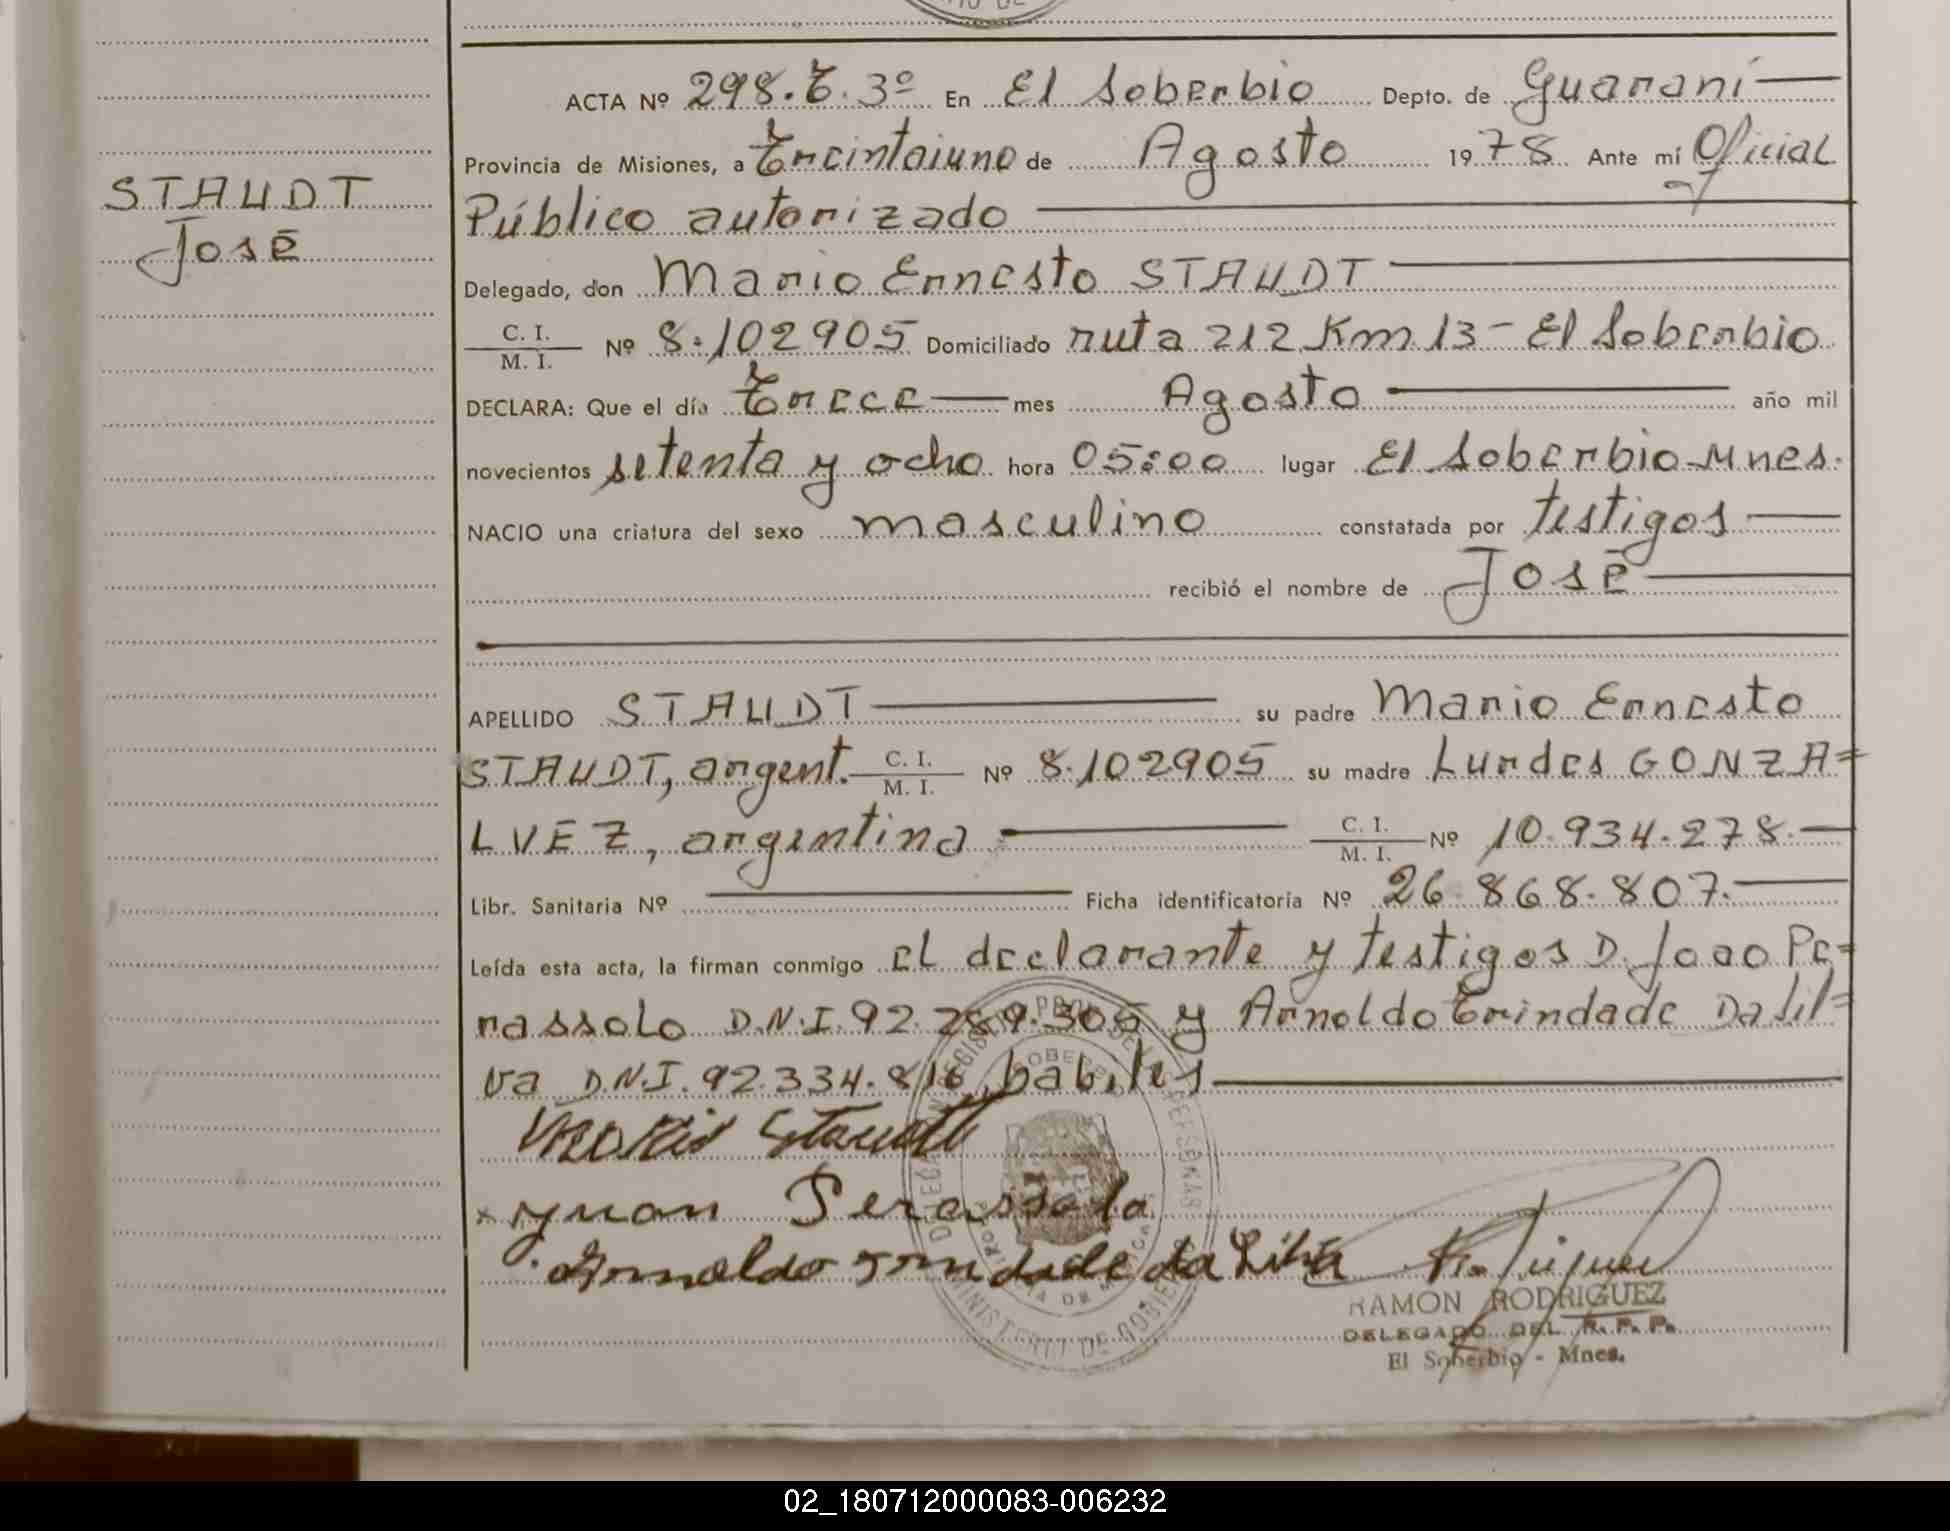 ACTA Nº 298.T.3º En El Soberbio Depto. de Guaraní
Provincia de Misiones, a Treintaiuno de Agosto 1978 Ante mí Oficial
Público autorizado
STAUDT
José
Delegado, don Mario Ernesto STAUDT
C. I.
M. I. Nº 8.102905 Domiciliado ruta 212 Km 13 - El Soberbio
DECLARA: Que el día Trece mes Agosto año mil
novecientos setenta y ocho hora 05:00 lugar El Soberbio-Mnes.
NACIO una criatura del sexo masculino constatada por testigos
recibió el nombre de José
APELLIDO STAUDT su padre Mario Ernesto
STAUDT, argent. C. I. M. I. Nº 8.102905 su madre Lurdes GONZA=
LVEZ, argentina C. I. M. I. Nº 10.934.278.
Libr. Sanitaria Nº Ficha identificatoria Nº 26.868.807.
Leída esta acta, la firman conmigo el declarante y testigos D. Joao Pe=
rassolo D.N.I. 92.289.305 y Arnoldo Trindade Da Sil=
va D.N.I. 92.334.816, habiles
Mario Staudt
x Juan Perassolo
Arnoldo Trindade da Silva
RAMON RODRIGUEZ
DELEGADO DEL R. P. P.
El Soberbio - Mnes.
02_180712000083-006232